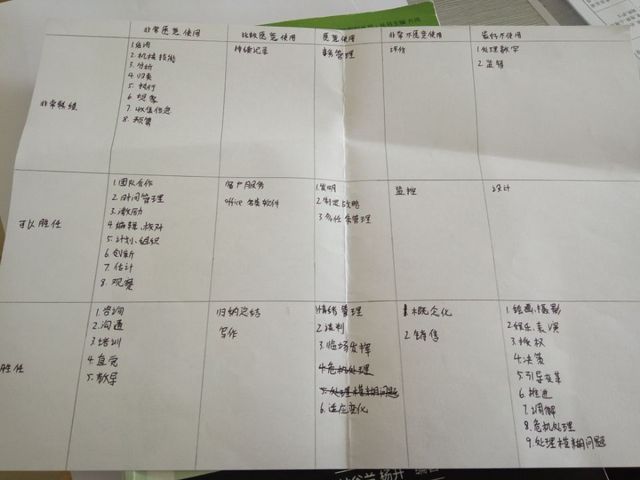 非常愿意使用 比较愿意使用 愿意使用 非常不愿意使用 最好不使用
非常熟练
2.机械技能
3.分析
4.归类
5.执行
6.想象
7.收集信息
8.预算
持续记录
事务管理
评价
1.处理数字
2.监督
可以胜任
1.团队合作
2.时间管理
3.激励
4.编辑、校对
5.计划、组织
6.创新
7.估计
8.观察
客户服务
office 各类软件
1.发明
2.制定战略
3.多任务管理
监控
设计
胜任
1.咨询
2.沟通
3.培训
4.直觉
5.教导
归纳总结
写作
情绪管理
2.谈判
3.临场发挥
4.危机处理
5.处理模糊问题
6.适应变化
1.概念化
2.销售
1.绘画、摄影
2.娱乐、表演
3.授权
4.决策
5.引导变革
6.推进
7.调解
8.危机处理
9.处理模糊问题